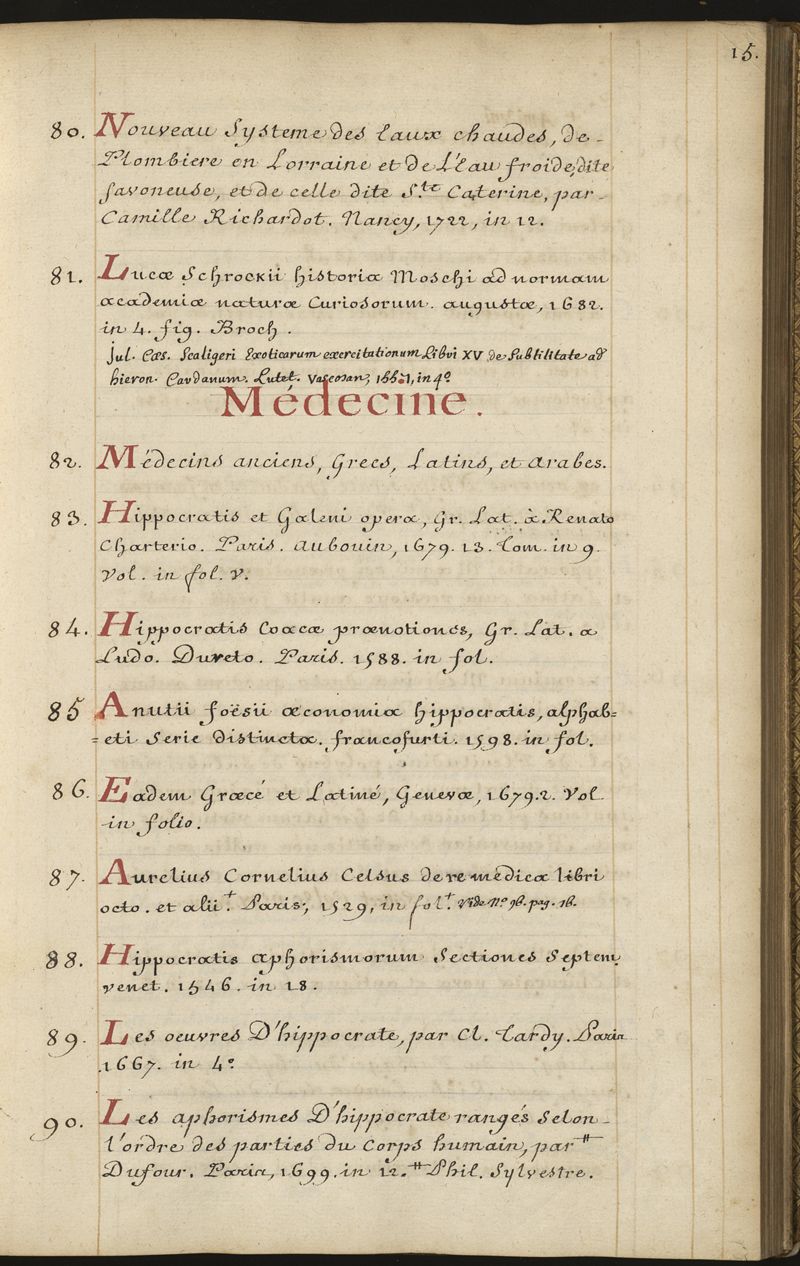 15.
80. Nouveau Systeme des Eaux chaudes, de
Plombiere en Lorraine et de L'eau froide, dite
savoneuse, et de celle dite S.te Caterine, par
Camille Richardot. Nancy, 1722, in 12.
81. Lucæ Schrockii historia Moschi ad normam
academiæ naturæ Curiosorum. augustæ, 1682.
in 4. fig. Broch.
Jul. Cæs. Scaligeri Exoticarum exercitationum Libri XV de Subtilitate ad
hieron. Cardanum. Lutet. in 4º
Médecine.
82. Médecins anciens, Grecs, Latins, et arabes.
83. Hippocratis et Galeni opera, Gr. Lat. à Renato
Charterio. Paris. aubouin, 1679. 13. tom. in 9.
Vol. in fol. V.
84. Hippocratis Coacæ prænotiones, Gr. Lat. a
Ludo. Dureto. Paris. 1588. in fol.
85 Anutii foësii œconomia hippocratis, alphab=
=eti Serie distincta. francofurti. 1598. in fol.
86. Eadem Græcé et Latiné, Genevæ, 1679. 2. Vol.
in folio.
87. Aurelius Cornelius Celsus de re medica libri
octo. et alii.+ Paris, 1529, in fol.+ Vide Nº 96. pag. 16.
88. Hippocratis aphorismorum Sectiones Septem
venet. 1546. in 18.
89. Les oeuvres D'hippocrate, par Cl. Tardy. Paris
1667. in 4º
90. Les aphorismes D'hippocrate rangés Selon
l'ordre des parties du Corps humain, par #
Dufour. Paris, 1699. in 12. # Phil. Sylvestre.